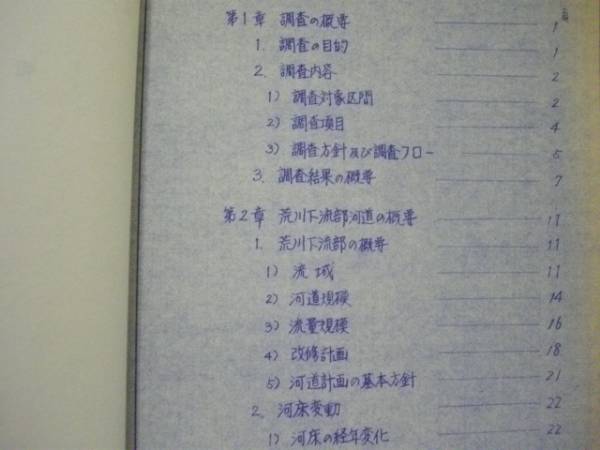 第1章 調査の概要 1
1. 調査の目的 1
2. 調査内容 2
1) 調査対象区間 2
2) 調査項目 4
3) 調査方針及び調査フロー 5
3. 調査結果の概要 7
第2章 荒川下流部河道の概要 11
1. 荒川下流部の概要 11
1) 流域 11
2) 河道規模 14
3) 流量規模 16
4) 改修計画 18
5) 河道計画の基本方針 21
2. 河床変動 22
1) 河床の経年変化 22